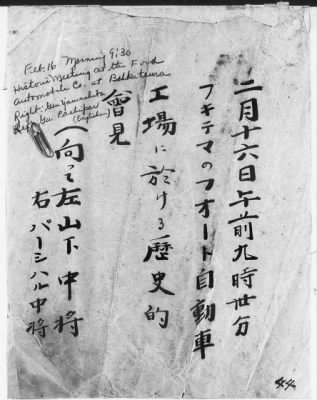 二月十六日午前九時丗分
フキテマのフオート自動車
工場に於ける歴史的
會見
(向って左山下中将
右パーシハル中将
Feb. 16 Morning 9:30
Historic Meeting at the Ford
Automobile Co. at Bukitema
Right: Gen Yamashita
Left: Gen Percival
(English)